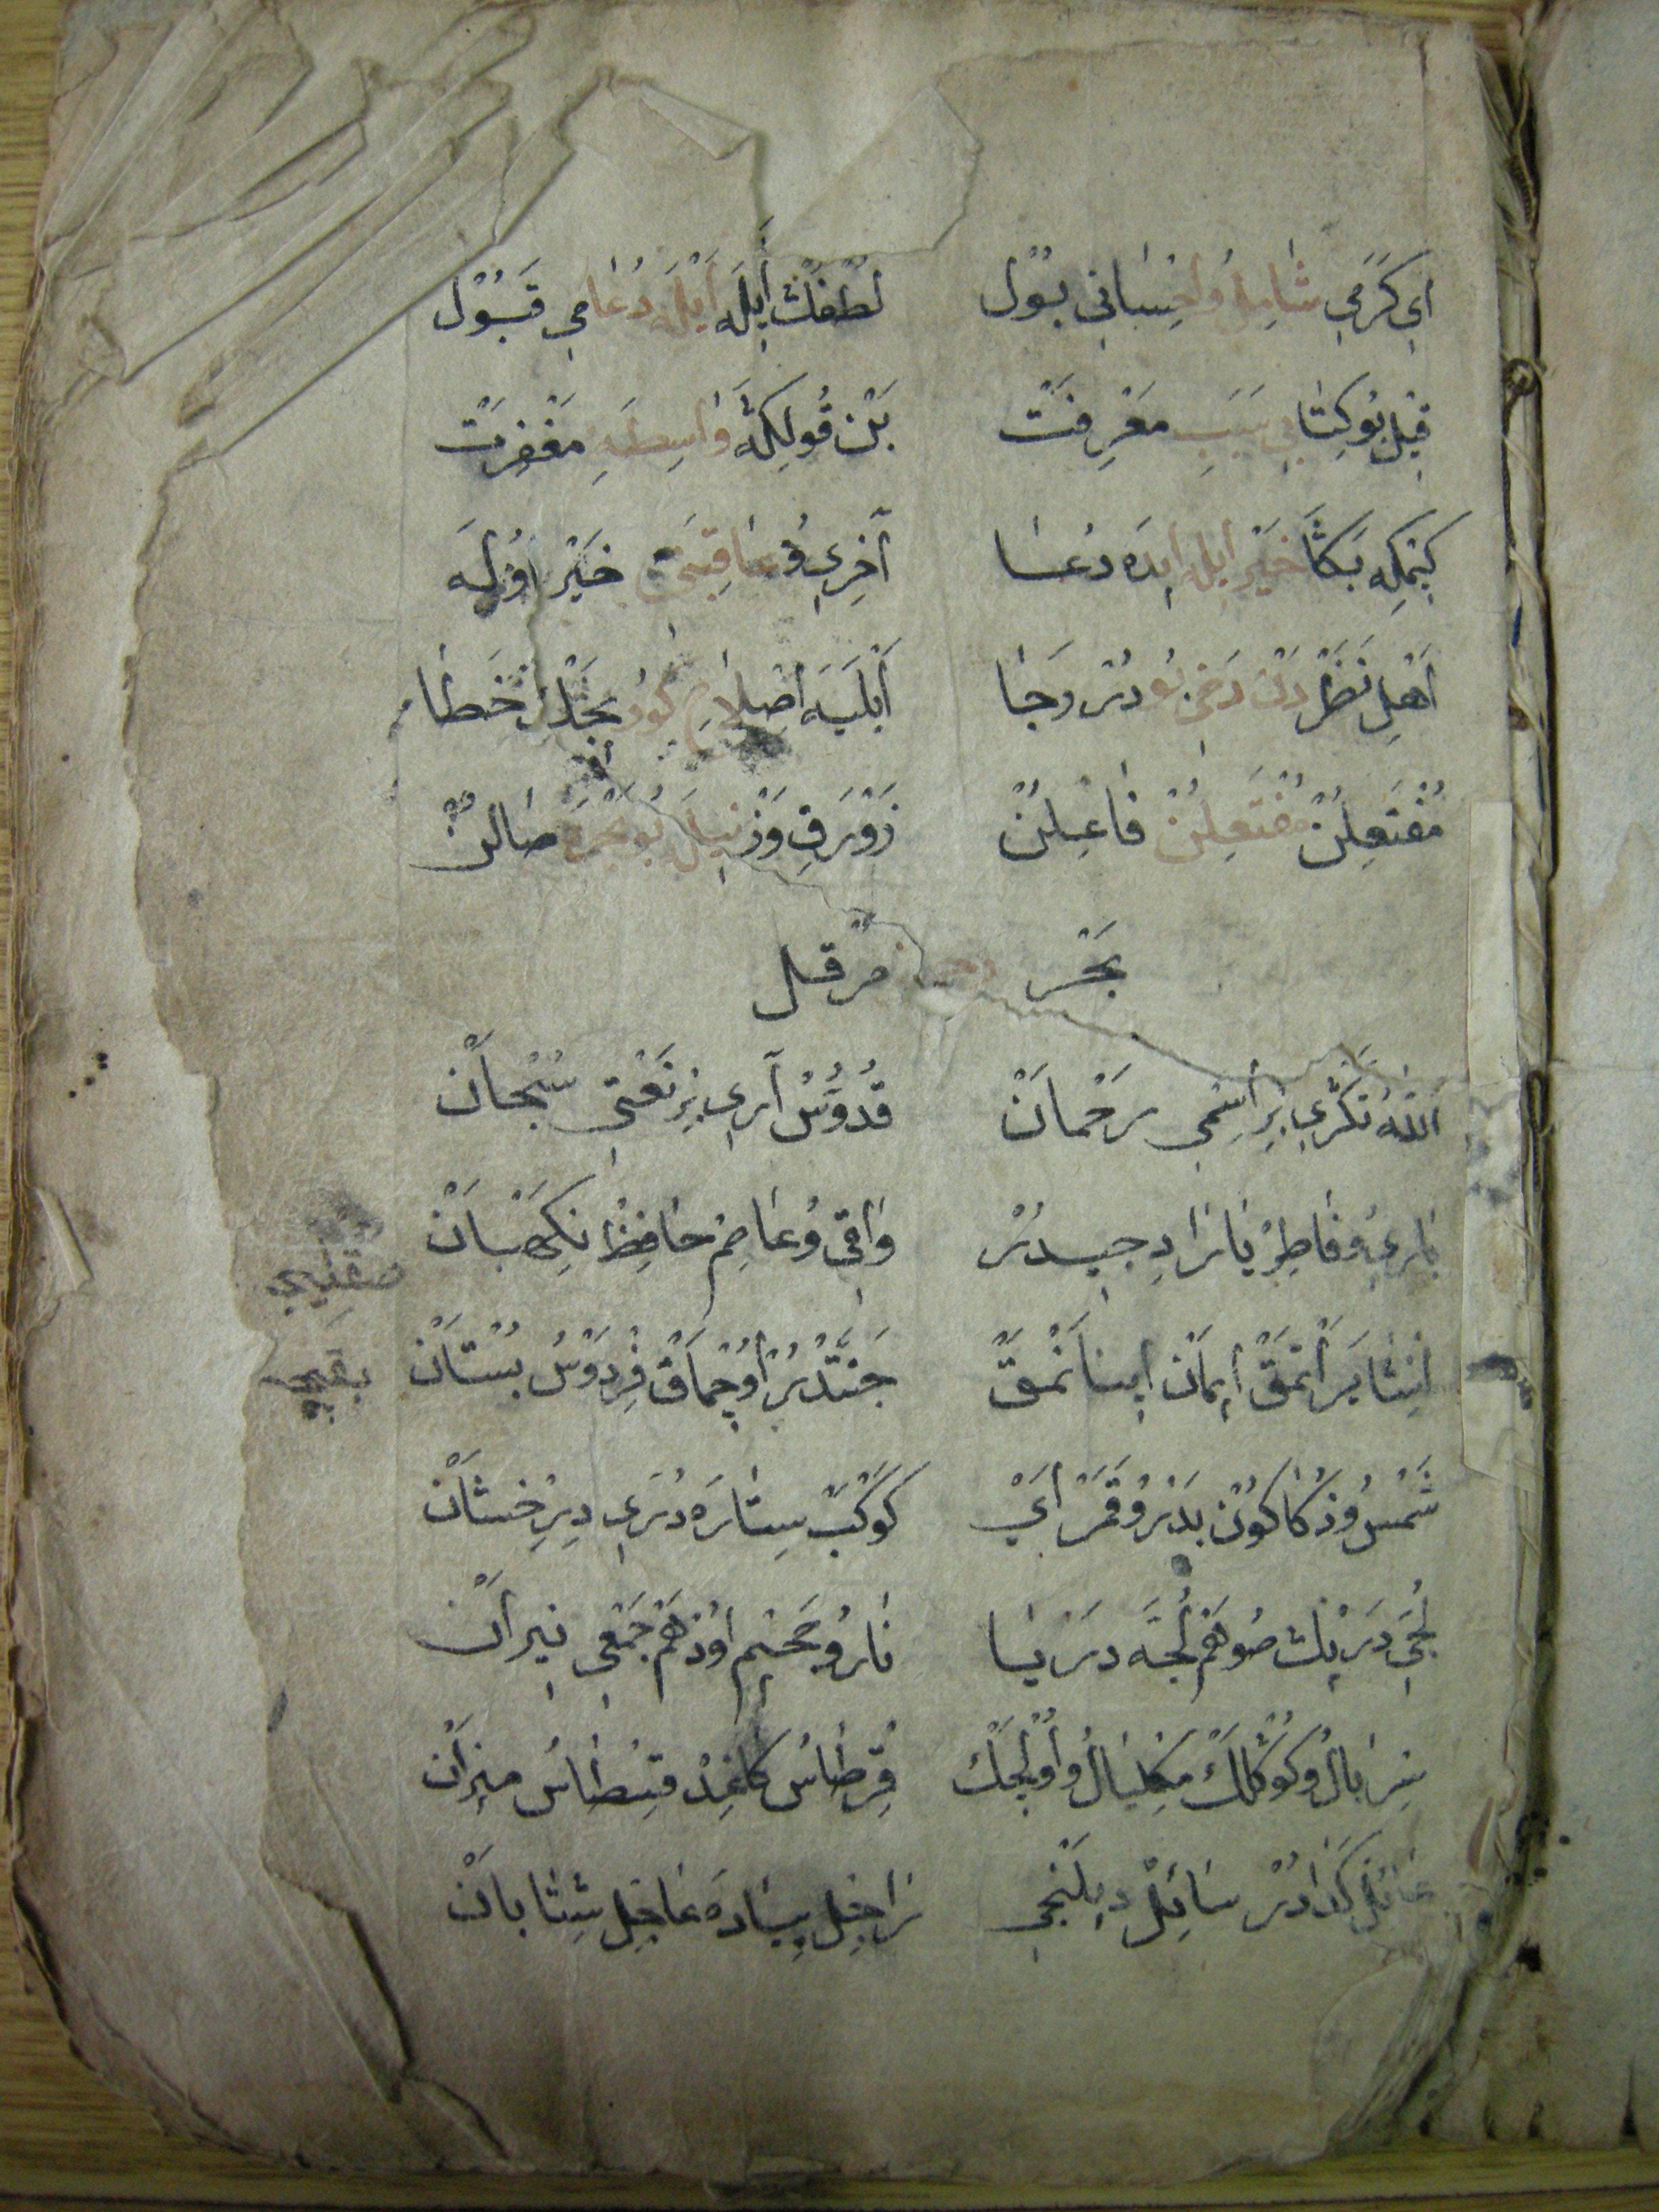 اَیْ كَرَمِي شَامِلُ وُ اِحْسَانِي بُوْل لُطْفُڭْ اِيلَه اَيْلَه دُعَامِي قَبُوْل
قِيْل بُو كِتَابِي سَبَبِ مَعْرِفَتْ بَنْ قُولِڭَه وَاسِطَهِ مَغْفِرَتْ
كِيمْكِه بَڭَا خَيْر اِيلَه اِيدَه دُعَا آخِرِي وُ عَاقِبَتِي خَيْر اُولَه
اَهْلِ نَظَرْدَنْ دَخِي بُودُرْ رَجَا اَيْلَيَه اِصْلَاح كُورِيجَڭْ خَطَا
مُفْتَعِلُنْ مُفْتَعِلُنْ فَاعِلُنْ زَوْرَقِ وَزْنِيلَه بُو بَحْرَه صَالُنْ
بَحْر
اَللّٰهْ تَڭْرِي بِرِ اِسْمِي رَحْمَانْ قُدُّوسْ آرِي بِرِ نَعْتِي سُبْحَانْ
بَارِي وُ فَاطِرْ يَارَادِجِيدُرْ وَاقِي وُ عَاصِمْ حَافِظْ نِكَهْبَانْ
اِيمَانْ اِينَانْمَقْ جَنَّتْدُرْ اُوچْمَاقْ فِرْدَوْسْ بُسْتَانْ
شَمْس وُ ذُكَا كُونْ بَدْر وُ قَمَرْ اَيْ كَوْكَبْ سِتَارَه دُرِّي دِرِخْشَانْ
لُجِّي دَرِينْڭْ صُو هَمْ لُجَّه دَرْيَا نَار وُ جَحِيمْ اُودْ هَمْ جَمْعِي نِيرَانْ
سِرْبَالْ وُ كُوڭْلَكْ مِكْيَالْ وُ اُولْچَكْ قِرْطَاسْ كَاغِدْ قِسْطَاسْ مِيزَانْ
عَائِلْ كَدَادُرْ سَائِلْ دِيلَنْجِي رَاجِلْ پِيَادَه عَاجِلْ شِتَابَانْ